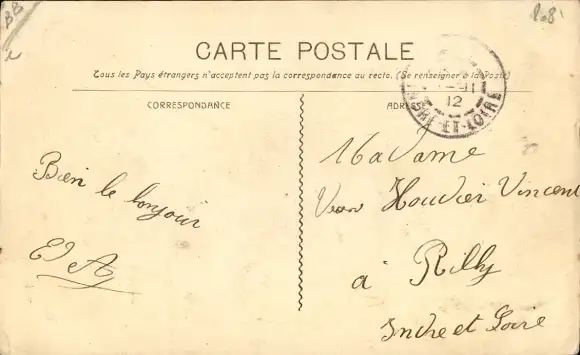 BB
CARTE POSTALE
Tous les Pays étrangers n'acceptent pas la correspondance au recto. (Se renseigner à la Poste)
CORRESPONDANCE
Bien le bonjour
ADRE
12
INDRE-ET-LOIRE
Madame
Houdier Vincent
à Rilly
Indre et Loire